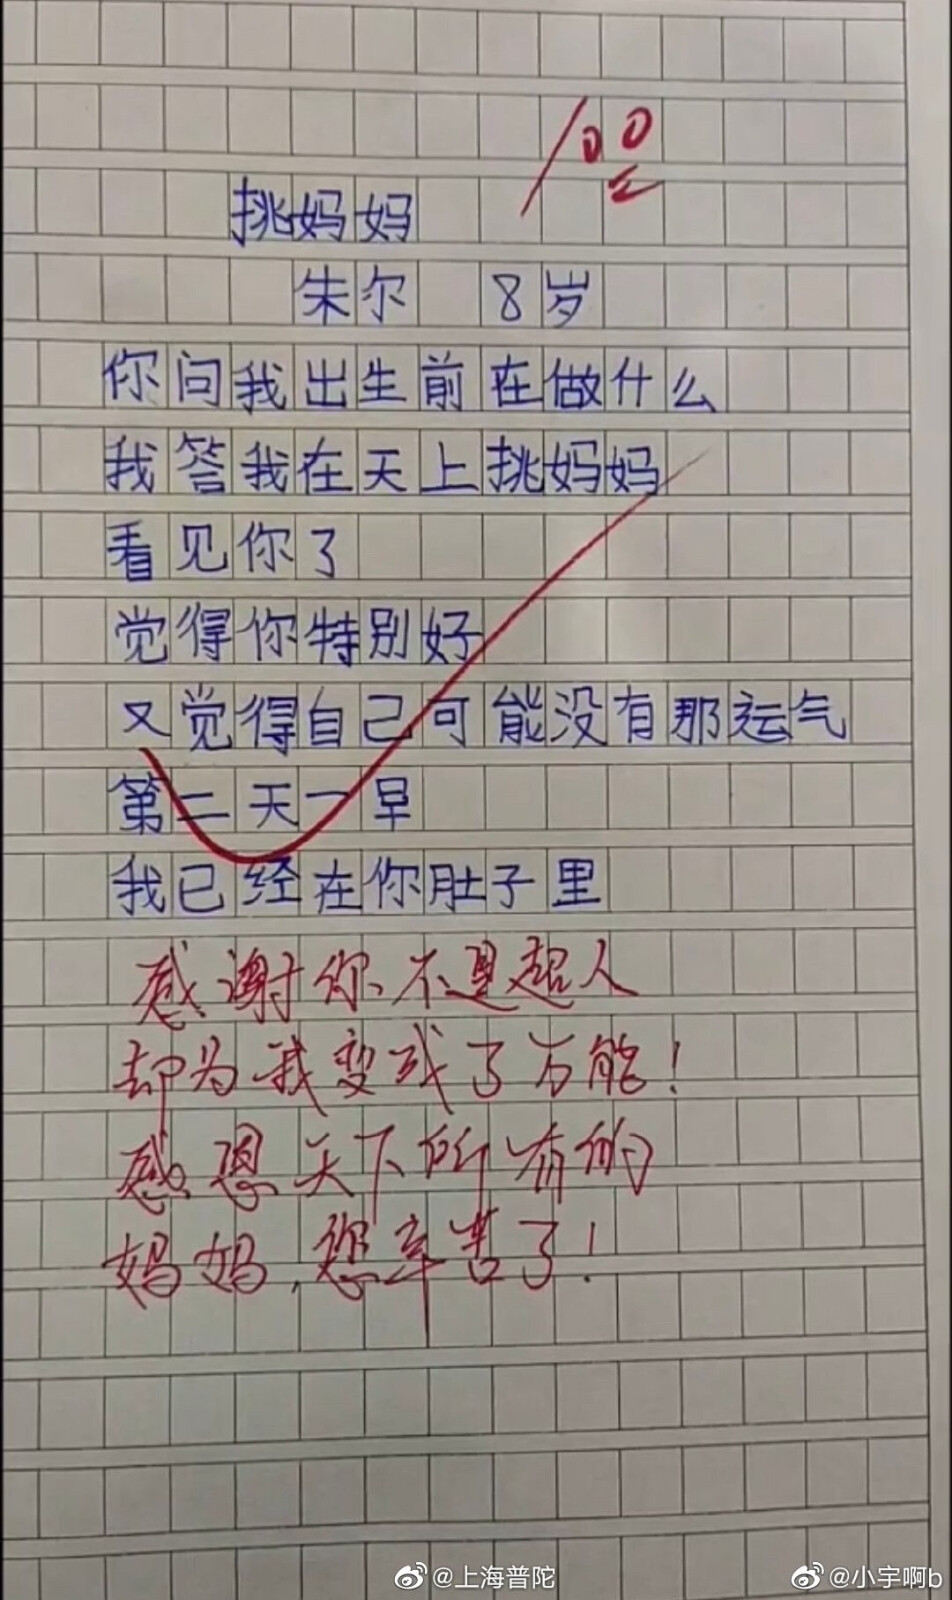 100
挑妈妈
朱尔 8岁
你问我出生前在做什么
我答我在天上挑妈妈
看见你了
觉得你特别好
又觉得自己可能没有那运气
第二天一早
我已经在你肚子里
感谢你不是超人
却为我变成了万能！
感恩天下所有的
妈妈，您辛苦了！
@上海普陀
@小宇啊b